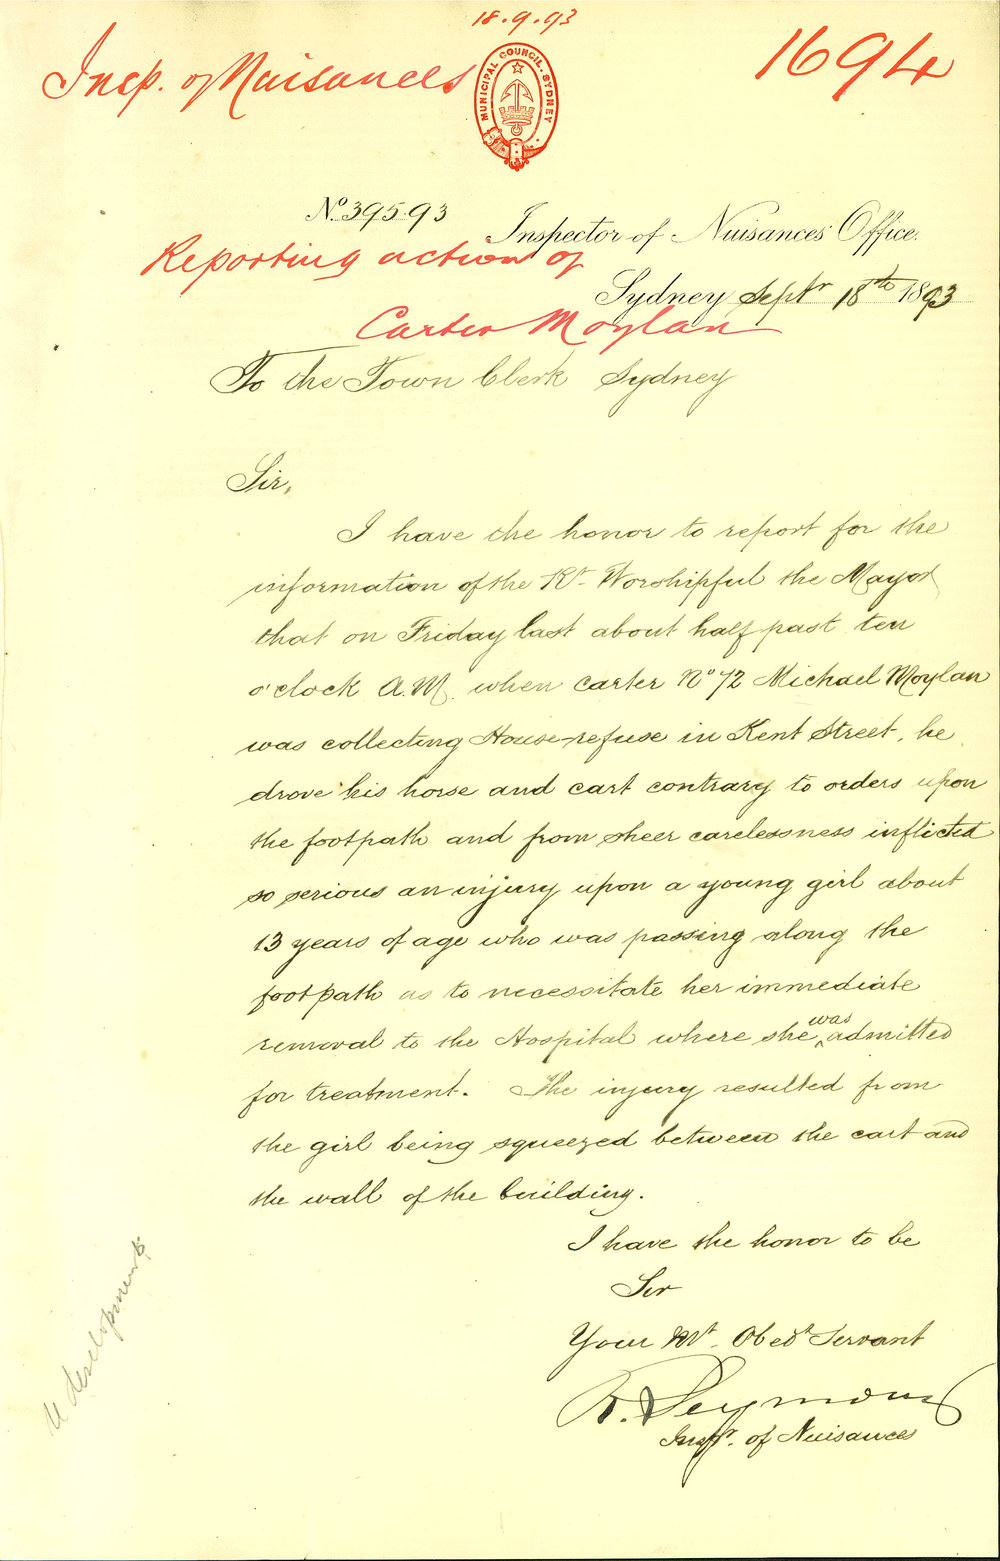 18.9.93
Insp. of Nuisances
MUNICIPAL COUNCIL. SYDNEY
1694
No. 395.93
Inspector of Nuisances' Office.
Reporting action of
Sydney Septr 18th 1893
Carter Moylan
To the Town Clerk Sydney
Sir,
I have the honor to report for the
information of the Rt. Worshipful the Mayor
that on Friday last about half past ten
o'clock A.M. when carter No 72 Michael Moylan
was collecting House-refuse in Kent Street, he
drove his horse and cart contrary to orders upon
the footpath and from sheer carelessness inflicted
so serious an injury upon a young girl about
13 years of age who was passing along the
footpath as to necessitate her immediate
removal to the Hospital where she was admitted
for treatment. The injury resulted from
the girl being squeezed between the cart and
the wall of the building.
I have the honor to be
Sir
Your Mt. Obedt Servant
R. Seymour
Inspr. of Nuisances
developments